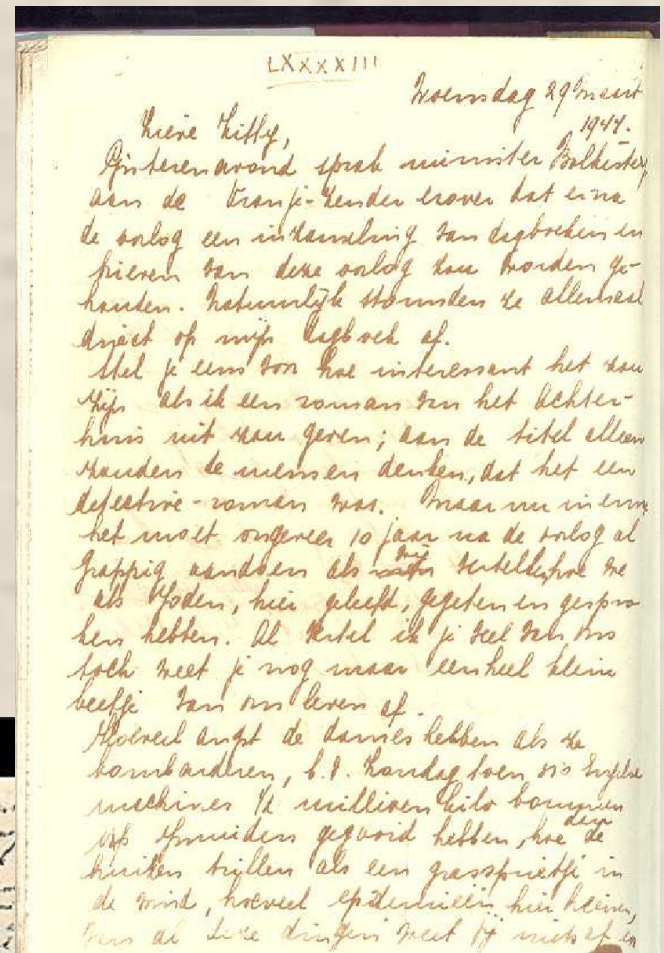 LXXXXIII
Woensdag 29 Maart
1944.
Lieve Kitty,
Gisterenavond sprak minister Bolkestein
aan de Oranje-zender erover dat er na
de oorlog een inzameling van dagboeken en
brieven van deze oorlog zou worden ge-
houden. Natuurlijk stormden ze allemaal
direct op mijn dagboek af.
Stel je eens voor hoe interessant het zou
zijn als ik een roman van het Achter-
huis uit zou geven; aan de titel alleen
zouden de mensen denken, dat het een
detective-roman was. Maar nu in ernst
het moet ongeveer 10 jaar na de oorlog al
grappig aandoen als wij vertellen hoe we
als Joden, hier geleefd, gegeten en gespro
ken hebben. Al vertel ik je veel van ons
toch weet je nog maar een heel klein
beetje van ons leven af.
Hoeveel angst de dames hebben als ze
bombarderen, b.v. Zondag toen 350 Engelse
machines 1/2 millioen kilo bommen
op Ijmuiden gegooid hebben, hoe dan de
huizen trillen als een grassprietje in
de wind, hoeveel epidemieën hier heersen,
van al deze dingen weet jij niets af en